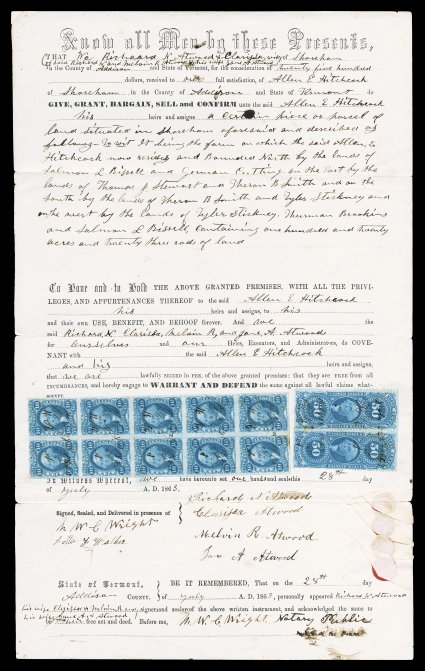 Know all Men by these Presents,
THAT We Richard N. Atwood & Clarissa, wife of Shoreham
in the County of Addison and State of Vermont, for the consideration of Twenty five hundred
dollars, received to our full satisfaction, of Allen E Hitchcock
of Shoreham, in the County of Addison and State of Vermont do
GIVE, GRANT, BARGAIN, SELL and CONFIRM unto the said Allen E Hitchcock
his heirs and assigns, a certain piece or parcel of
land situated in Shoreham aforesaid and described as
follows To wit It being the farm on which the said Allen E.
Hitchcock now resides and Bounded North by the lands of
Salmon L Bissell and Gorman Cutting on the East by the
lands of Thomas J Stewart and Theron B Smith and on the
South by the lands of Theron B Smith and Tyler Stickney and
on the west by the lands of Tyler Stickney, Thurman Brookins
and Salmon L Bissell, Containing one hundred and twenty
acres and twenty three rods of land
To Have and to Hold THE ABOVE GRANTED PREMISES, WITH ALL THE PRIVI-
LEGES, AND APPURTENANCES THEREOF to the said Allen E Hitchcock
his heirs and assigns, to his
and their own USE, BENEFIT, AND BEHOOF forever. And we the
said Richard N. Clarissa, Melvin R, and Jane A. Atwoods
for ourselves and our Heirs, Executors, and Administrators, do COVE-
NANT with the said Allen E Hitchcock
and his heirs and assigns,
that we are LAWFULLY SEIZED IN FEE, of the above granted premises: that they are FREE FROM ALL
INCUMBRANCES, and hereby engage to WARRANT AND DEFEND the same against all lawful claims what-
ever.
In Witness Whereof, we have hereunto set our hands and seals this 28th day
of July A. D. 1863.
Richard N. Atwood
Signed, Sealed, and Delivered in presence of
Clarissa Atwood
M. W. C. Wright
Melvin R. Atwood
A Atwood
State of Vermont,
BE IT REMEMBERED, That on the 28th day
Addison COUNTY. of July A.D. 1863, personally appeared Richard N. Atwood
signers and sealers of the above written instrument, and acknowledged the same to
be their free act and deed. Before me, M. W. C. Wright Notary Public